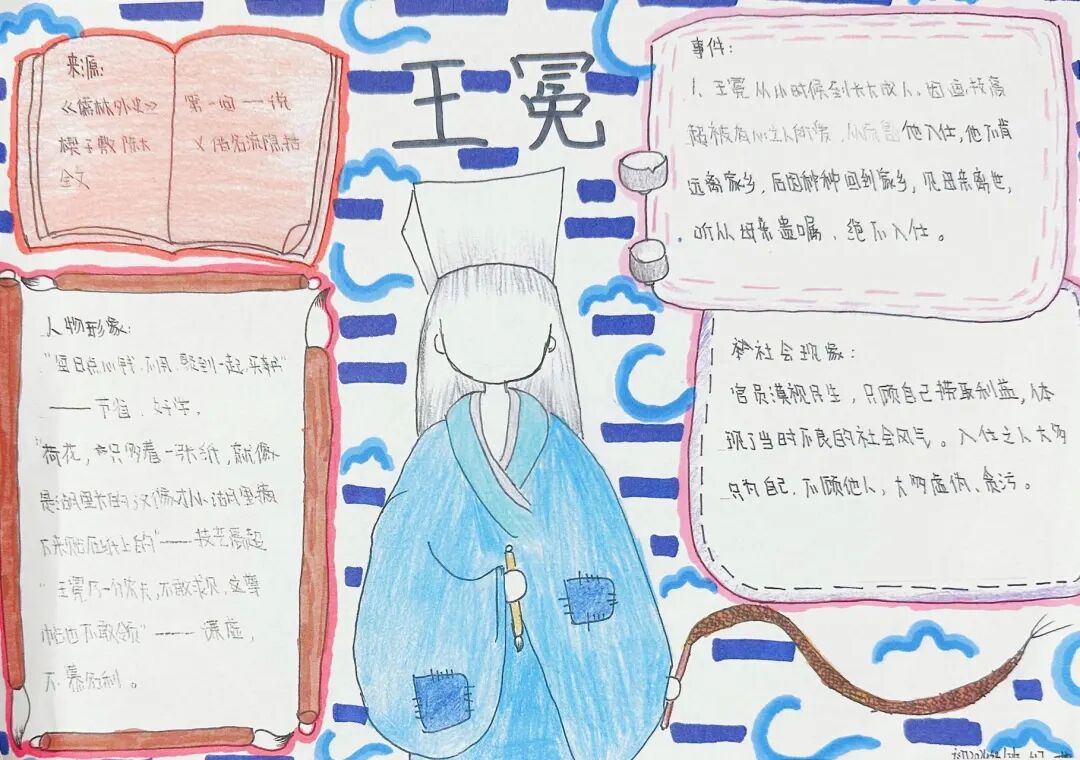 王冕
来源:
《儒林外史》 第一回——说
楔子敷陈大 义借名流隐括
全文
事件:
1、王冕从小时候到长大成人,因画技高
超被有心之人所 他入仕,他不肯
远离家乡,后因种种回到家乡,见母亲离世,
听从母亲遗嘱,绝不入仕。
人物形象:
"每日点心钱,不用,聚到一起,买 "
——节省、好学。
"荷花,只多着一张纸,就像
是湖里长的,又像才从湖里摘
下来贴在纸上的"——技艺高超
"王冕乃一个农夫,不敢求见,这尊
帖也不敢领"——谦虚,
不慕名利。
社会现象:
官员漠视民生,只顾自己捞取利益,体
现了当时不良的社会风气。入仕之人大多
只为自己,不顾他人,大多虚伪、贪污。